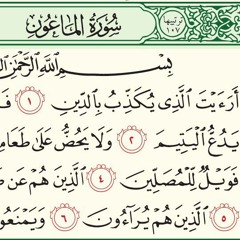 سُورَةُ المَاعُون
ترتيبها ١٠٧
بِسْمِ ٱللَّهِ ٱلرَّحْمَٰنِ
أَرَءَيْتَ ٱلَّذِى يُكَذِّبُ بِٱلدِّينِ ١ فَ
يَدُعُّ ٱلْيَتِيمَ ٢ وَلَا يَحُضُّ عَلَىٰ طَعَامِ
فَوَيْلٌ لِّلْمُصَلِّينَ ٤ ٱلَّذِينَ هُمْ عَن صَ
٥ ٱلَّذِينَ هُمْ يُرَآءُونَ ٦ وَيَمْنَعُو